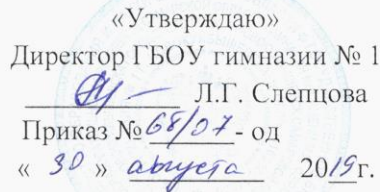 «Утверждаю»
Директор ГБОУ гимназии № 1
Л.Г. Слепцова
Приказ № 68/07 - од
« 30 » августа 2019г.